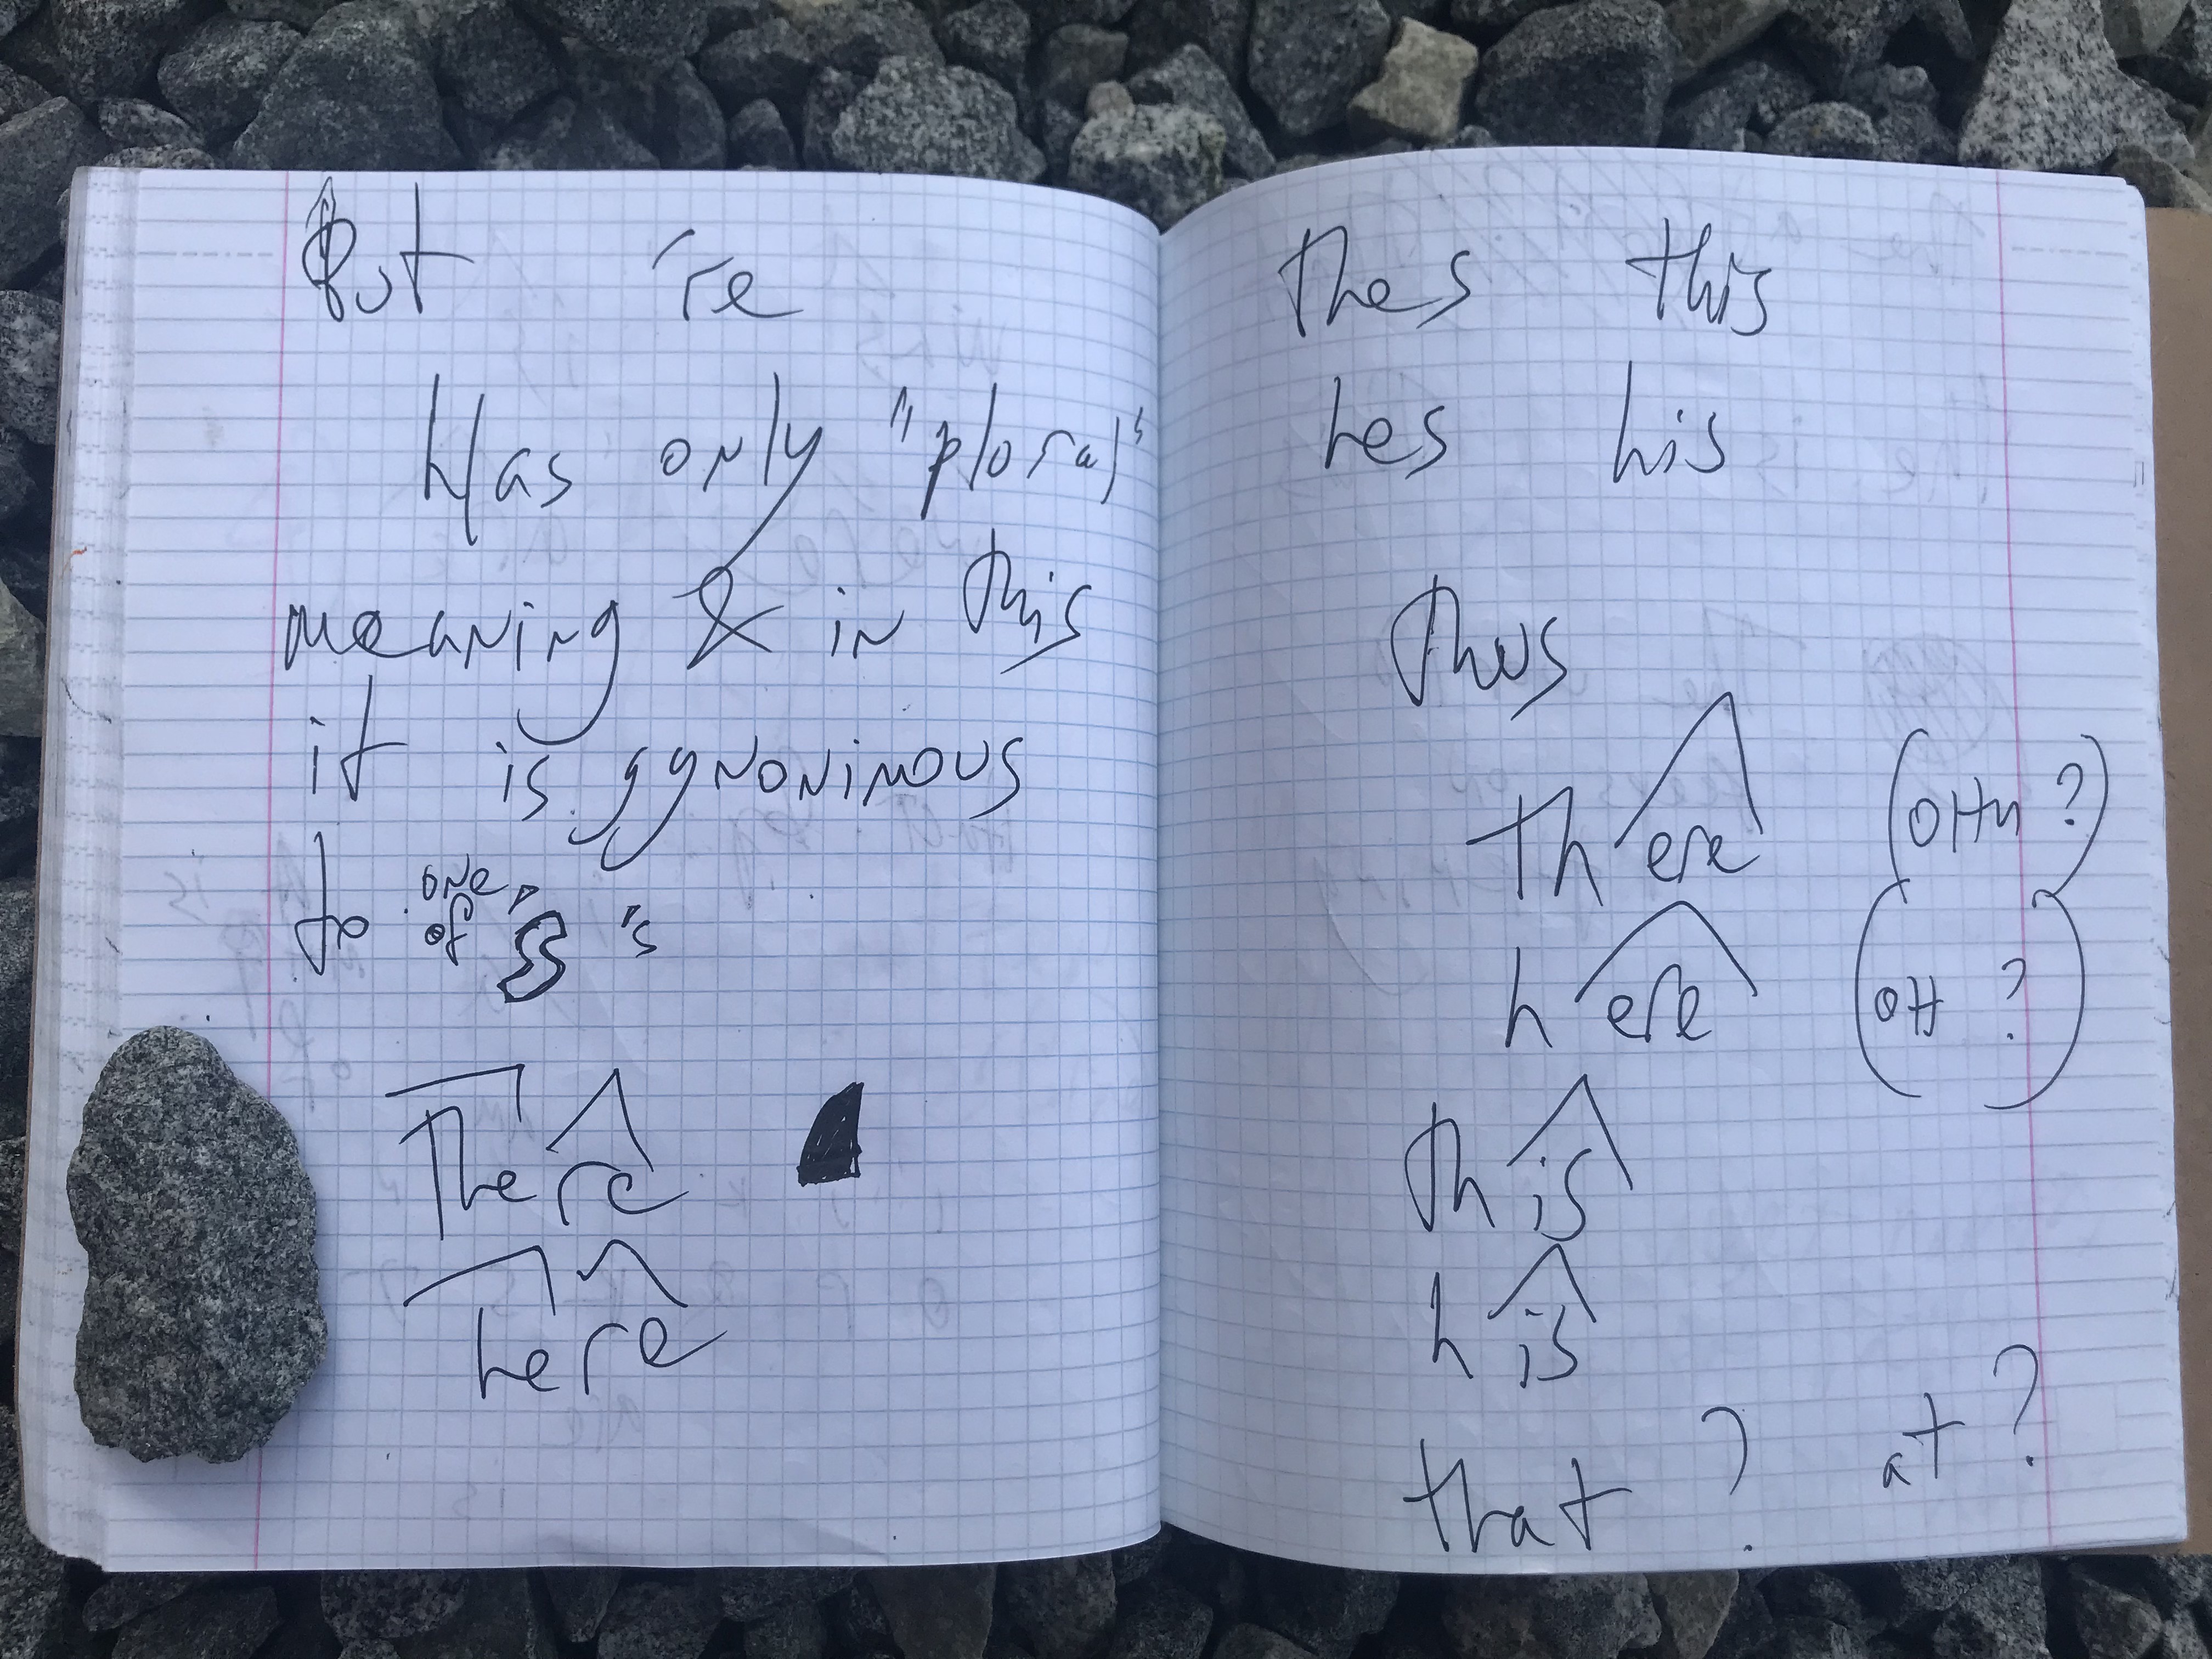 But re
has only "plora"s
meaning & in this
it is synonimous
to one of "s
There
here
thes this
hes his
thus
th ere (OHN?)
h ere (OH ?)
th is
h is
that ? at ?